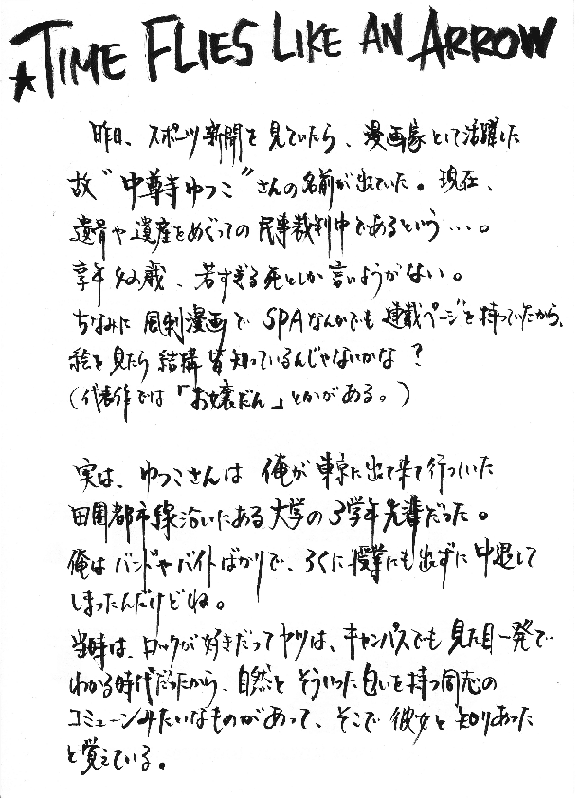 ★TIME FLIES LIKE AN ARROW
昨日、スポーツ新聞を見ていたら、漫画家として活躍した
故"中尊寺ゆつこ"さんの名前が出ていた。現在、
遺骨や遺産をめぐっての民事裁判中であるという…。
享年42歳、若すぎる死としか言いようがない。
ちなみに風刺漫画でSPAなんかでも連載ページを持っていたから、
絵を見たら結構皆知っているんじゃないかな?
(代表作では「お嬢だん」とかがある。)
実は、ゆつこさんは俺が東京に出て来て行っていた
田園都市線沿いにある大学の3学年先輩だった。
俺はバンドやバイトばかりで、ろくに授業にも出ずに中退して
しまったんだけどね。
当時は、ロックが好きだってヤツは、キャンパスでも見た目一発で
わかる時代だったから、自然とそういった匂いを持つ同志の
コミューンみたいなものがあって、そこで彼女と知りあった
と覚えている。